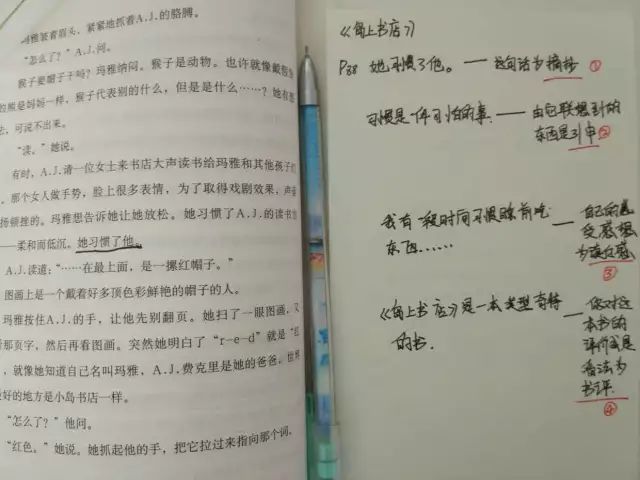 玛雅皱着眉头,紧紧地抓着A.J.的胳膊。
“怎么了?”A.J.问。
猴子要帽子干吗?玛雅纳闷。猴子是动物。也许就像戴假发
的熊是妈妈一样,猴子代表别的什么,但是是什么……?她有想
法,可说不出来。
“读。”她说。
有时,A.J.请一位女士来书店大声读书给玛雅和其他孩子们
那个女人做手势,脸上很多表情,为了取得戏剧效果,声音
扬顿挫的。玛雅想告诉她让她放松。她习惯了A.J.的读书方
——柔和而低沉。她习惯了他。
A.J.读道:“……在最上面,是一摞红帽子。”
图画上是一个戴着好多顶色彩鲜艳的帽子的人。
玛雅按住A.J.的手,让他先别翻页。她扫了一眼图画,又
那页字,然后再看图画。突然她明白了“r-e-d”就是“红
,就像她知道自己名叫玛雅,A.J.费克里是她的爸爸,世界
最好的地方是小岛书店一样。
“怎么了?”他问。
“红色。”她说。她抓起他的手,把它拉过来指向那个词。
《岛上书店》
P88 她习惯了他。——这句话为摘抄 ①
习惯是一件可怕的事.——由它联想到的
东西是引申②
我有一段时间习惯睡前吃
东西……
——自己的感
受感想
为读后感
③
《岛上书店》是一本类型奇特
的书.
——你对这
本书的
评价或是
看法为
书评.
④